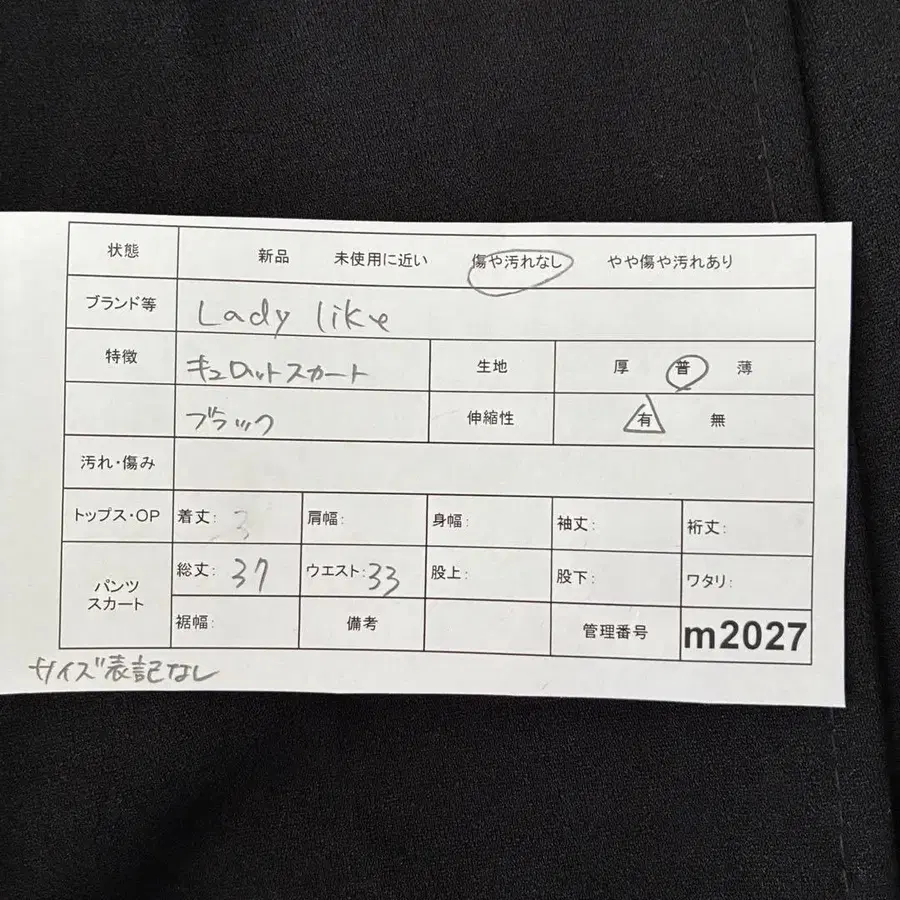 状態 新品 未使用に近い 傷や汚れなし やや傷や汚れあり
ブランド等 Lady like
特徴 キュロットスカート 生地 厚 普 薄
ブラック 伸縮性 有 無
汚れ・傷み
トップス・OP 着丈: 3 肩幅: 身幅: 袖丈: 裄丈:
パンツ スカート 総丈: 37 ウエスト: 33 股上: 股下: ワタリ:
裾幅: 備考 管理番号 m2027
サイズ表記なし